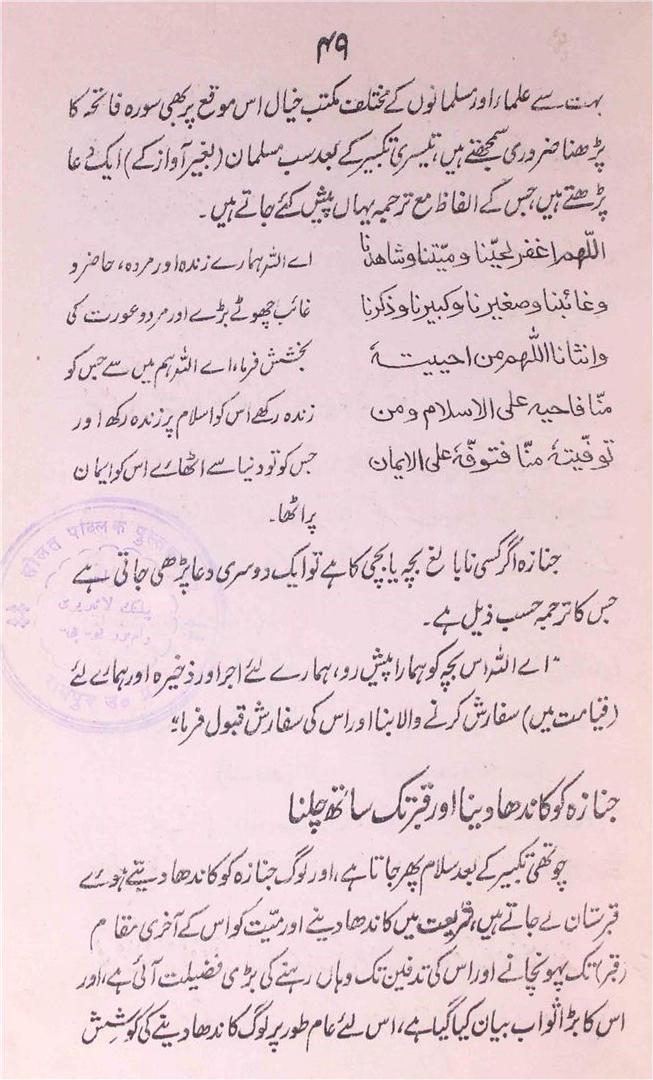 ۴۹
بہت سے علماء اور مسلمانوں کے مختلف مکتب خیال اس موقع پر بھی سورہ فاتحہ کا
پڑھنا ضروری سمجھتے ہیں، تیسری تکبیر کے بعد سب مسلمان (بغیر آواز کے) ایک دعا
پڑھتے ہیں، جس کے الفاظ مع ترجمہ یہاں پیش کئے جاتے ہیں۔
اللّٰھم اغفر لحیّنا ومیّتنا وشاھدنا
وغائبنا وصغیرنا وکبیرنا وذکرنا
وانثانا اللّٰھم من احییتہٗ
منّا فاحیہ علی الاسلام ومن
توفّیتہٗ منّا فتوفّہٗ علی الایمان
اے اللہ ہمارے زندہ اور مردہ، حاضر و
غائب چھوٹے بڑے اور مرد و عورت کی
بخشش فرما، اے اللہ ہم میں سے جس کو
زندہ رکھے اس کو اسلام پر زندہ رکھ اور
جس کو تو دنیا سے اٹھائے اس کو ایمان
پر اٹھا۔
جنازہ اگر کسی نابالغ بچہ یا بچی کا ہے تو ایک دوسری دعا پڑھی جاتی ہے
جس کا ترجمہ حسب ذیل ہے۔
"اے اللہ اس بچہ کو ہمارا پیش رو، ہمارے لئے اجر اور ذخیرہ اور ہمارے لئے
(قیامت میں) سفارش کرنے والا بنا اور اس کی سفارش قبول فرما"
جنازہ کو کاندھا دینا اور قبر تک ساتھ چلنا
چوتھی تکبیر کے بعد سلام پھر جاتا ہے، اور لوگ جنازہ کو کاندھا دیتے ہوئے
قبرستان لے جاتے ہیں، شریعت میں کاندھا دینے اور میّت کو اس کے آخری مقام
(قبر) تک پہونچانے اور اس کی تدفین تک وہاں رہنے کی بڑی فضیلت آئی ہے، اور
اس کا بڑا ثواب بیان کیا گیا ہے، اس لئے عام طور پر لوگ کاندھا دینے کی کوشش
सौलत पब्लिक
پبلک لائبریری
رامپور یو۔پی۔
रामपुर उ०